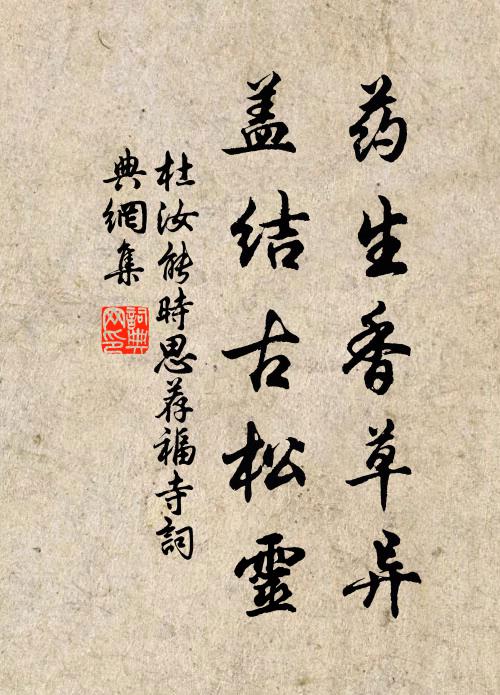 药生香草异
盖结古松靈
杜汝能時思荐福寺詞
典網集
詞典
网印